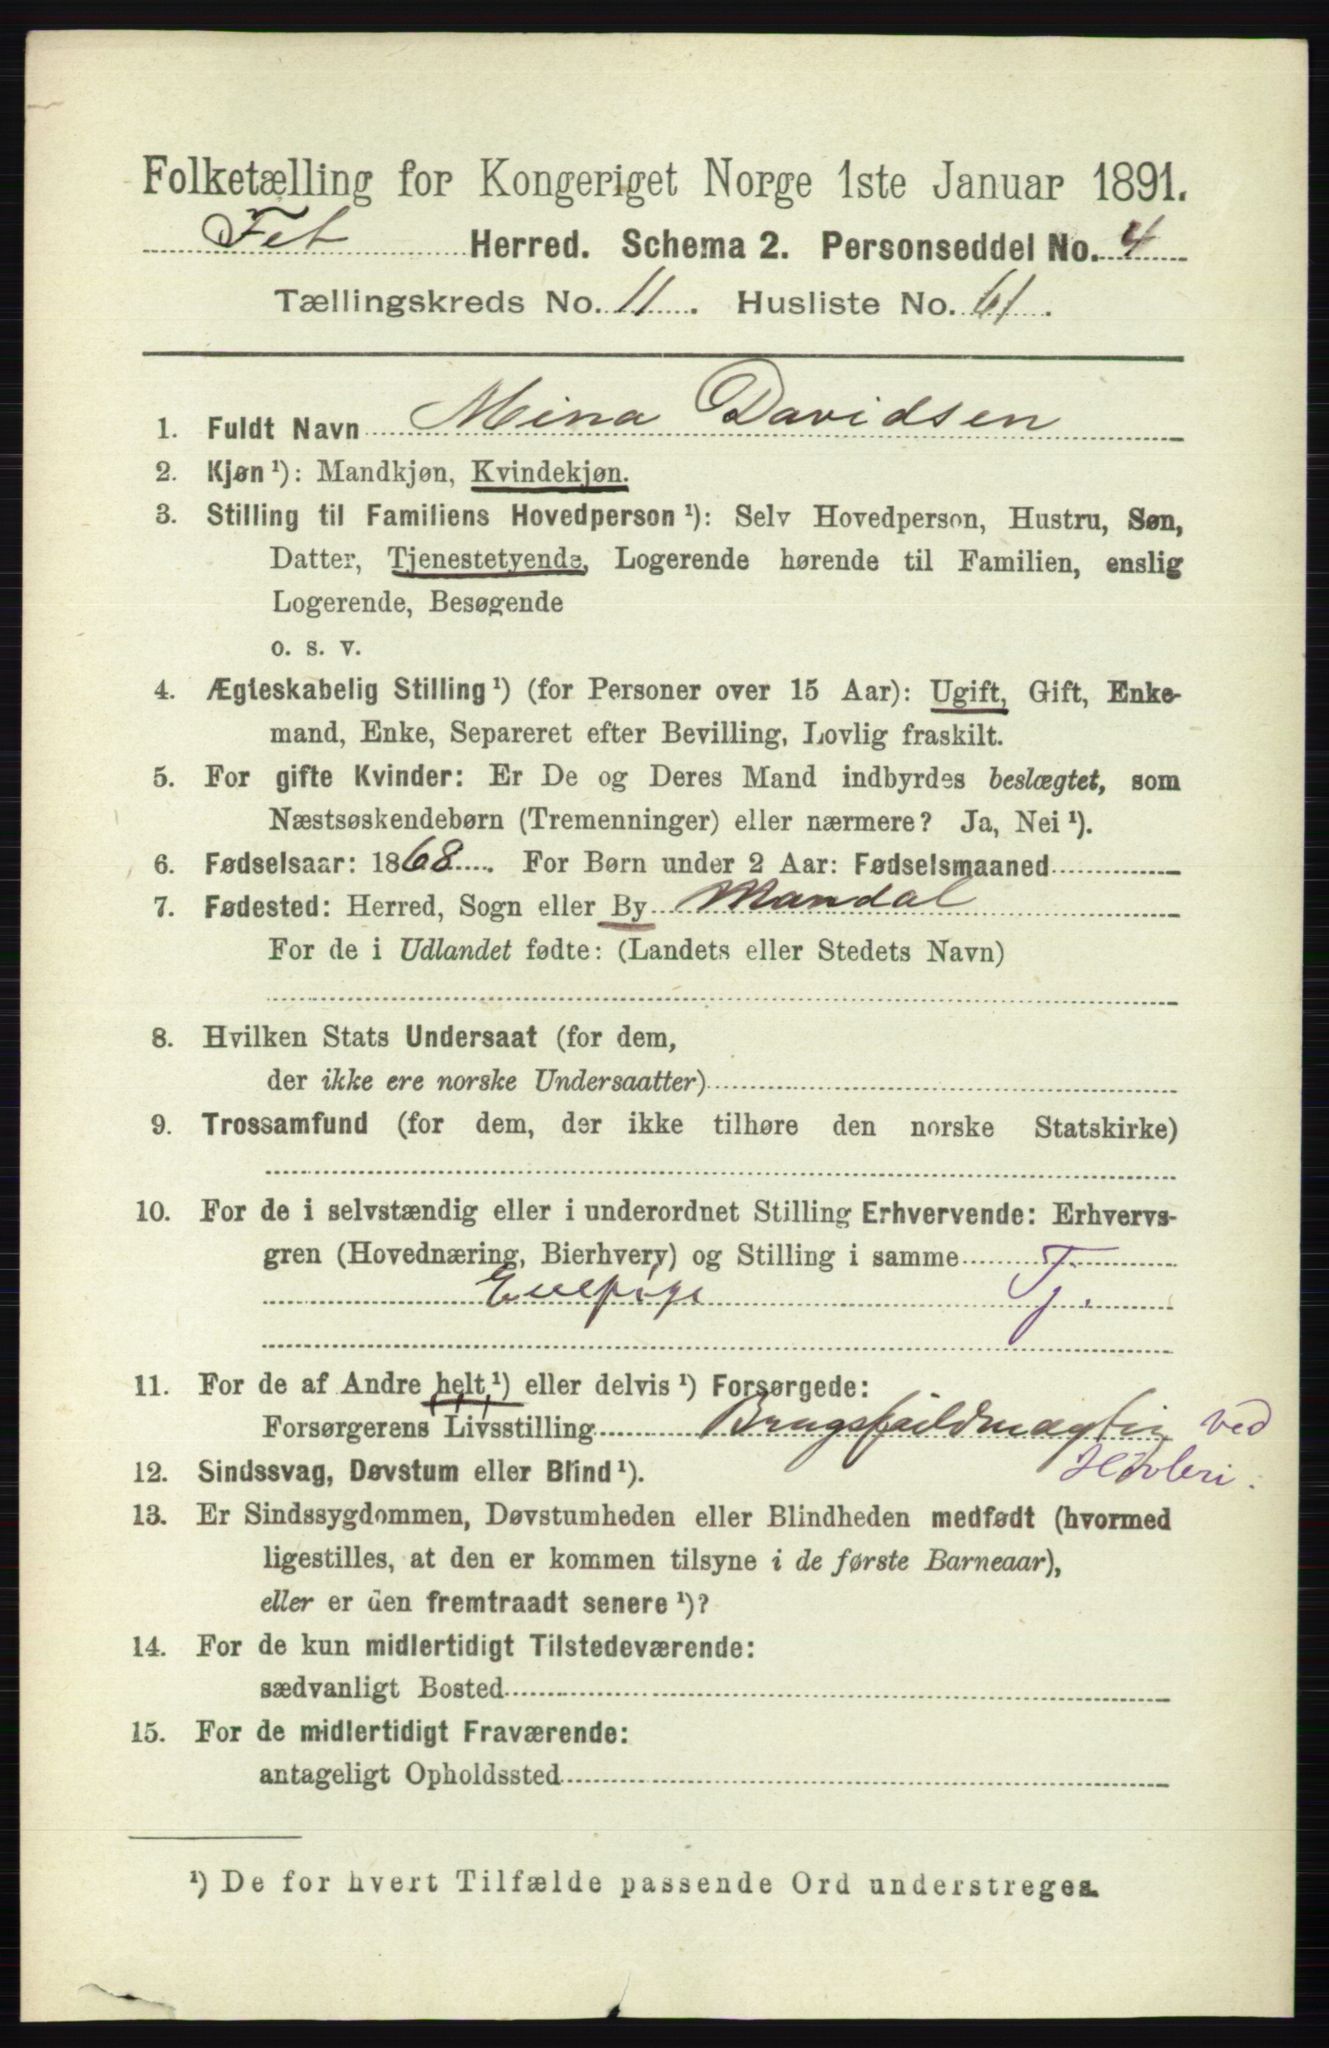 Folketælling for Kongeriget Norge 1ste Januar 1891.
Fet Herred. Schema 2. Personseddel No. 4
Tællingskreds No. 11. Husliste No. 61.
1. Fuldt Navn Mina Davidsen
2. Kjøn¹): Mandkjøn, Kvindekjøn.
3. Stilling til Familiens Hovedperson¹): Selv Hovedperson, Hustru, Søn,
Datter, Tjenestetyende, Logerende hørende til Familien, enslig
Logerende, Besøgende
o. s. v.
4. Ægteskabelig Stilling¹) (for Personer over 15 Aar): Ugift, Gift, Enke-
mand, Enke, Separeret efter Bevilling, Lovlig fraskilt.
5. For gifte Kvinder: Er De og Deres Mand indbyrdes beslægtet, som
Næstsøskendebørn (Tremenninger) eller nærmere? Ja, Nei¹).
6. Fødselsaar: 1868. For Børn under 2 Aar: Fødselsmaaned
7. Fødested: Herred, Sogn eller By Mandal
For de i Udlandet fødte: (Landets eller Stedets Navn)
8. Hvilken Stats Undersaat (for dem,
der ikke ere norske Undersaatter)
9. Trossamfund (for dem, der ikke tilhøre den norske Statskirke)
10. For de i selvstændig eller i underordnet Stilling Erhvervende: Erhvervs-
gren (Hovednæring, Bierhverv) og Stilling i samme
Enepige Tj.
11. For de af Andre helt¹) eller delvis¹) Forsørgede:
Forsørgerens Livsstilling ved
12. Sindssvag, Døvstum eller Blind¹).
13. Er Sindssygdommen, Døvstumheden eller Blindheden medfødt (hvormed
ligestilles, at den er kommen tilsyne i de første Barneaar),
eller er den fremtraadt senere¹)?
14. For de kun midlertidigt Tilstedeværende:
sædvanligt Bosted
15. For de midlertidigt Fraværende:
antageligt Opholdssted
¹) De for hvert Tilfælde passende Ord understreges.